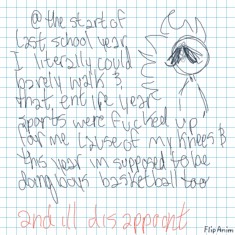 @ the start of
last school year
I literally could
barely walk &
that entire year
sports were fucked up
for me cause of my knees &
this year im supposed to be
doing boys basketball too
and ill disappoint
FlipAnim